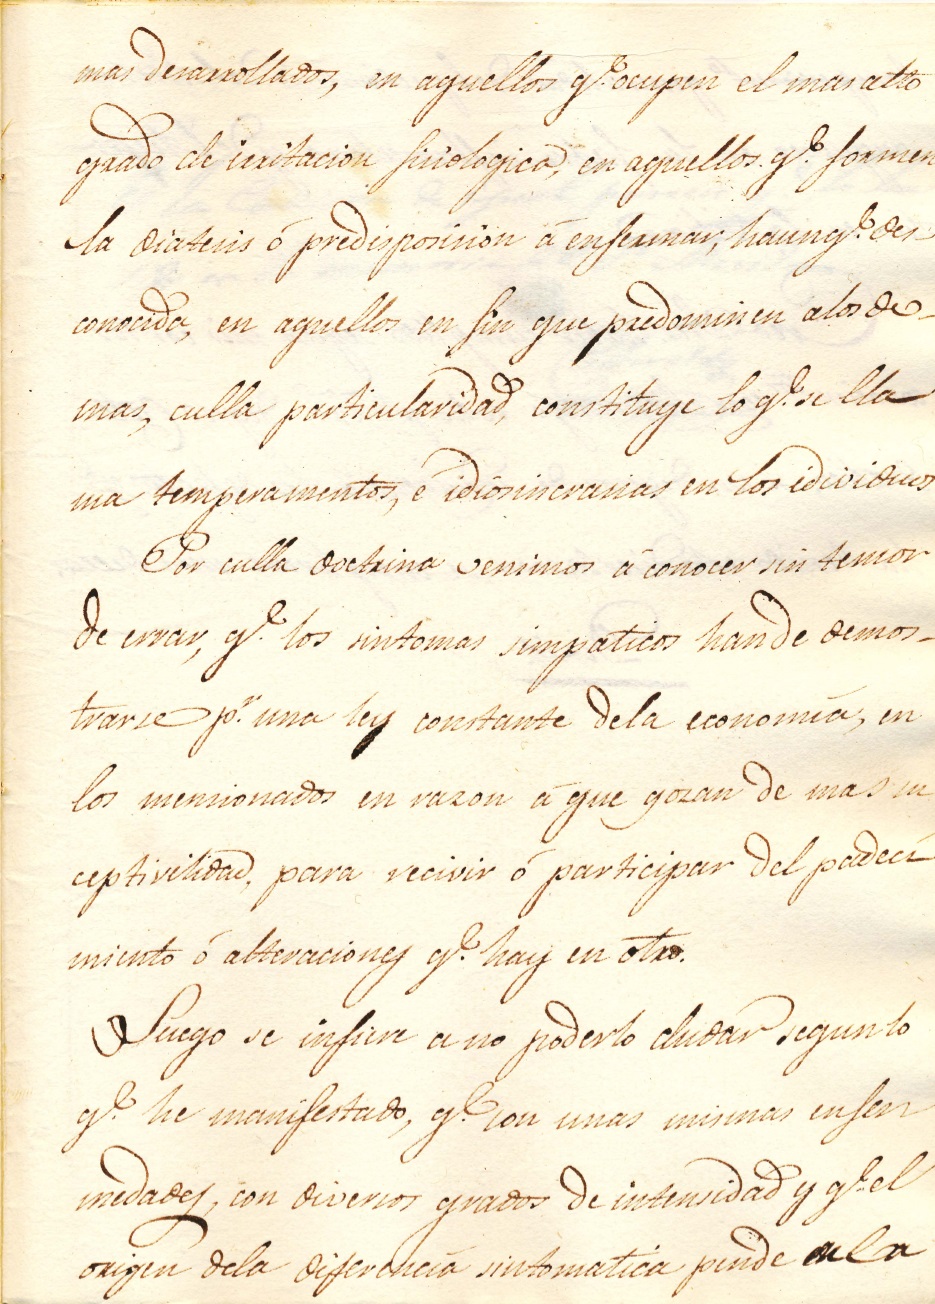 mas desarrollados, en aquellos q.e ocupen el mas alto
grado de irritacion fisiologica, en aquellos q.e formen
la diatesis ó predisposision á enfermar, haunq.e des-
conocida, en aquellos en fin que predominen a los de-
mas, culla particularidad, constituye lo q.e se lla
ma temperamentos, é idiosincrasias en los idividuos
Por culla doctrina venimos á conocer sin temor
de errar, q.e los sintomas simpaticos han de demos-
trarse p.r una ley constante de la economia, en
los mensionados en razon á que gozan de mas su
ceptivilidad, para recivir ó participar del padeci
miento ó alteraciones q.e hay en otro.
Luego se infiere a no poderlo dudar segun lo
q.e he manifestado, q.e son unas mismas enfer
medades, con diversos grados de intensidad y q.e el
origen de la diferencia sintomatica pende en la